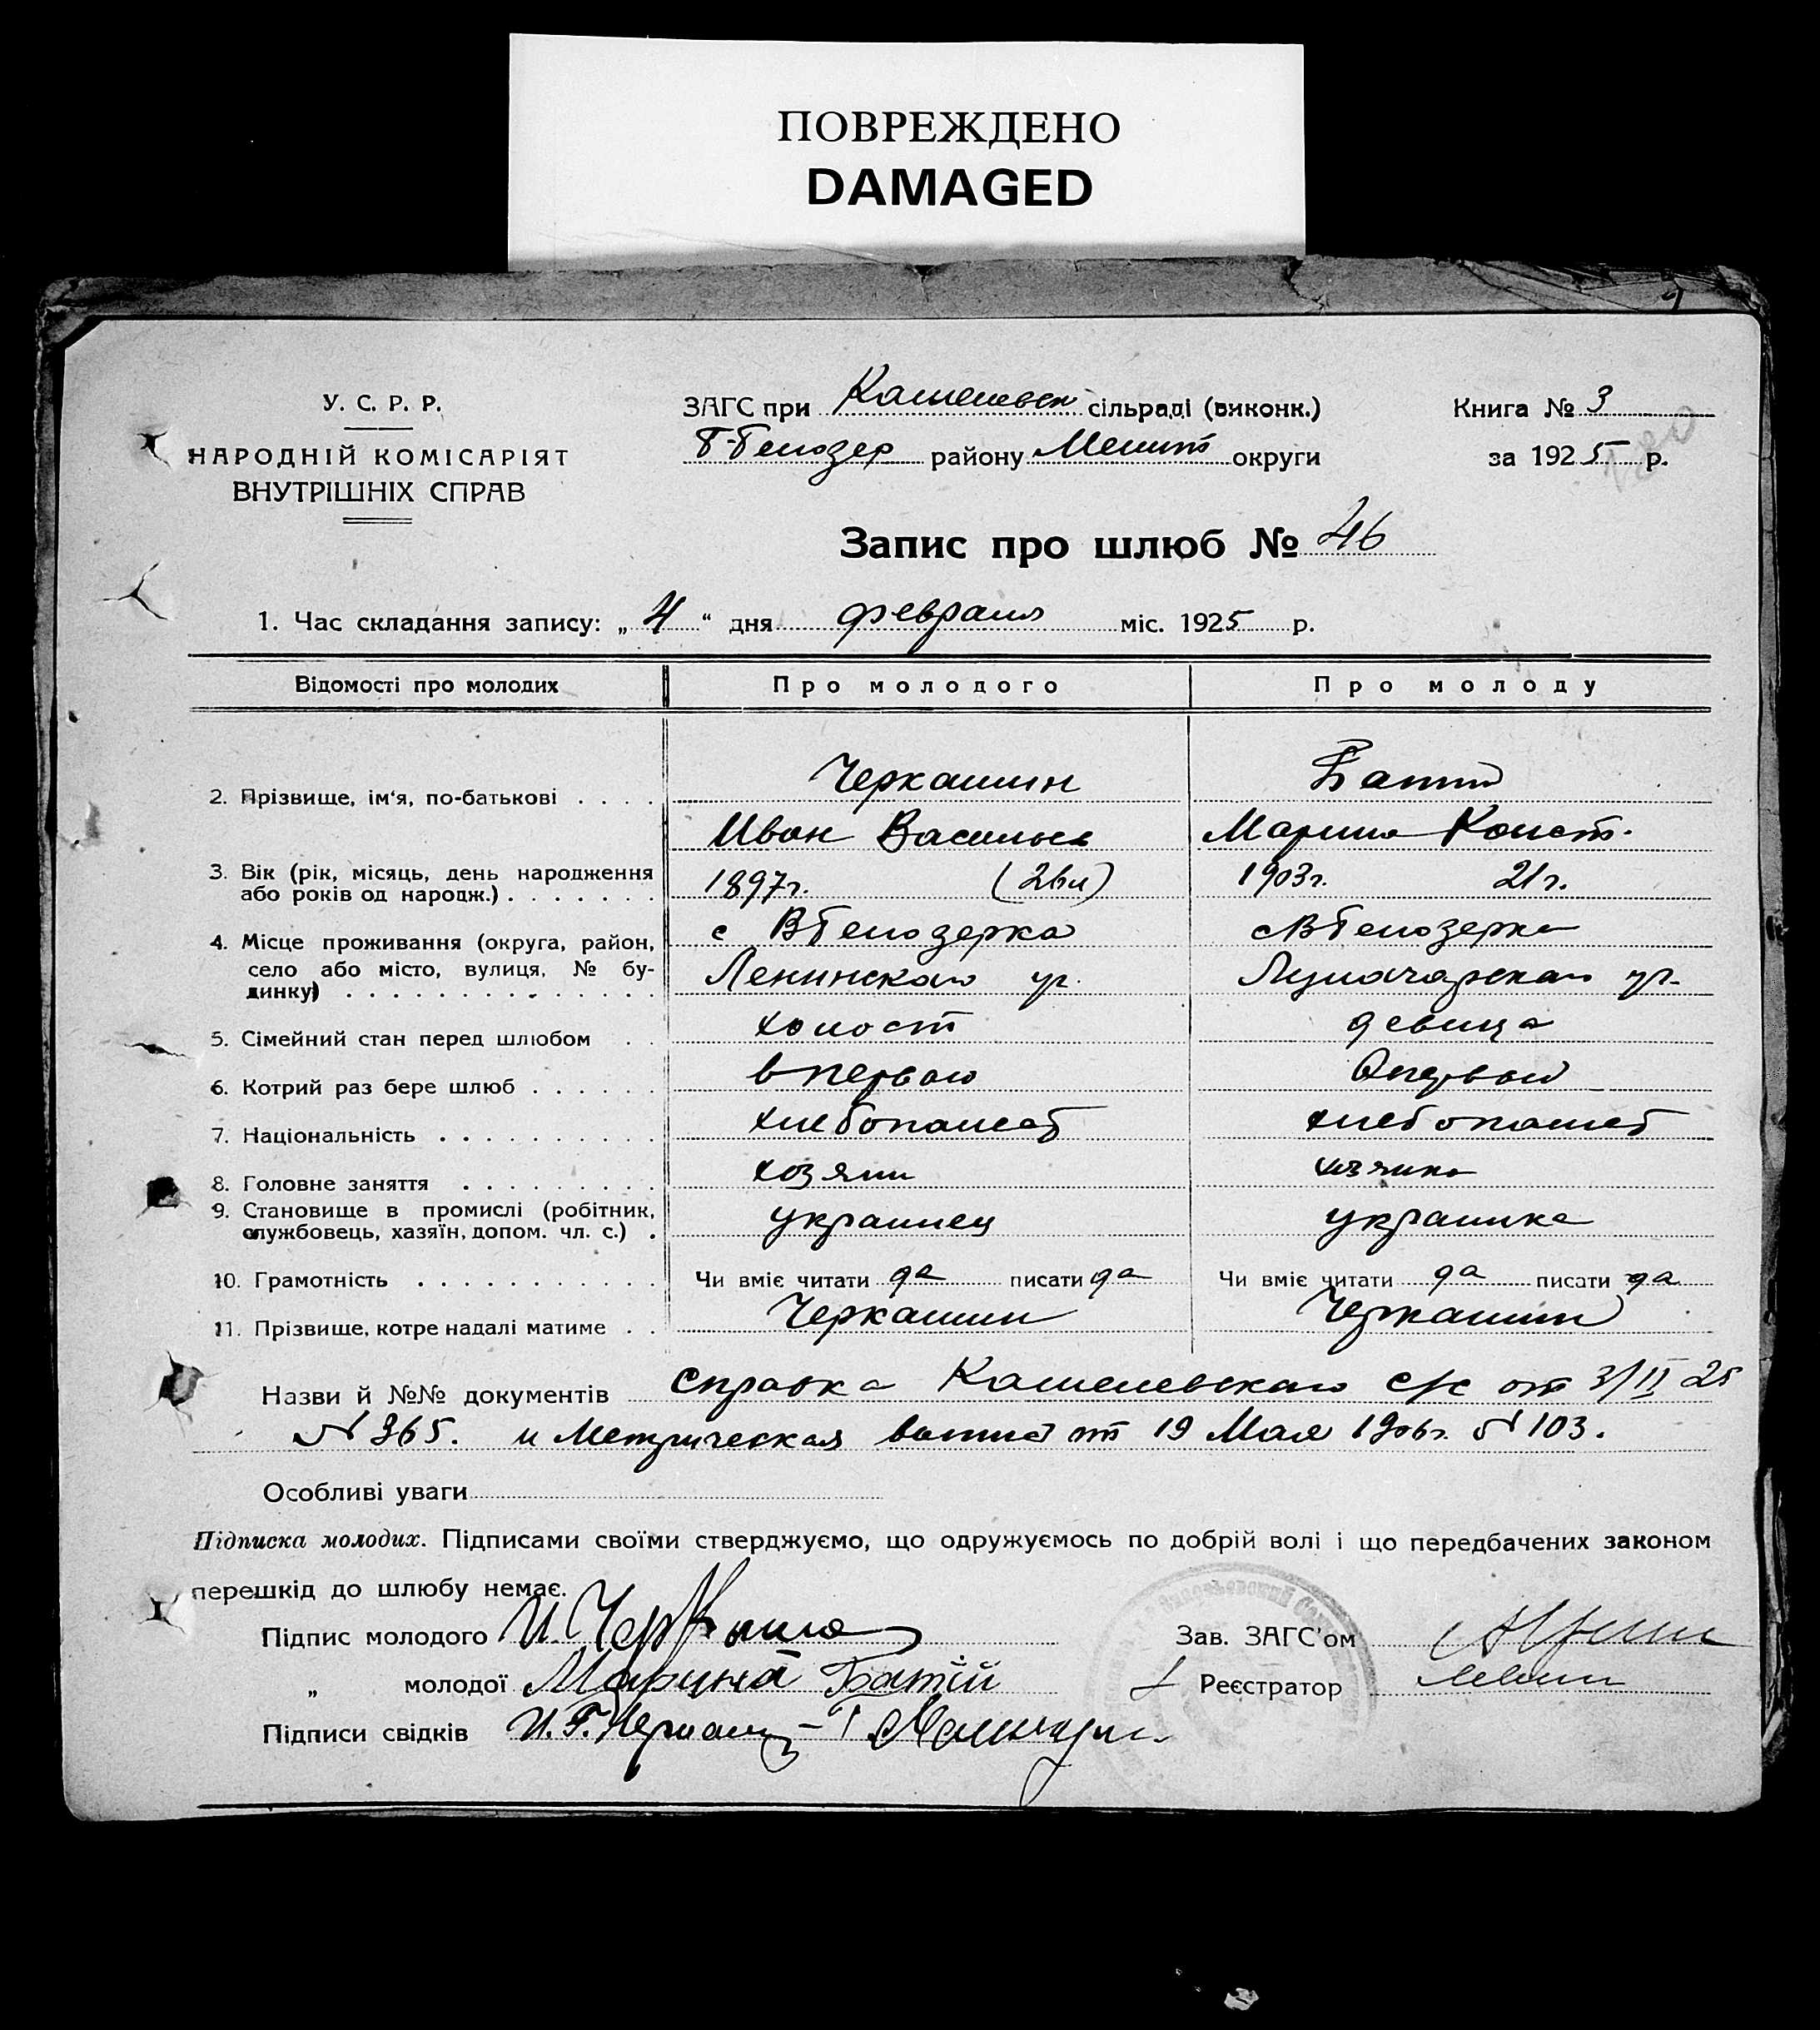 ПОВРЕЖДЕНО
DAMAGED
У. С. Р. Р.
НАРОДНІЙ КОМІСАРІЯТ
ВНУТРІШНІХ СПРАВ
ЗАГС при Кашелевск сільраді (виконк.)
Б-Белозер району Мелит округи
Книга № 3
за 1925 р.
Запис про шлюб № 46
1. Час складання запису: „4“ дня февраля міс. 1925 р.
Відомості про молодих Про молодого Про молоду
2. Прізвище, ім'я, по-батькові . . . . Черкашин Батий
Иван Васильев Марина Конст.
3. Вік (рік, місяць, день народження
або років од народж.) . . . . . . . 1897г. 1903г. 21г.
4. Місце проживання (округа, район, с ВБелозерка с ВБелозерка
село або місто, вулиця, № бу-
динку) . . . . . . . . . . . . . . Ленинская ул. Луначарская ул.
5. Сімейний стан перед шлюбом . . холост девица
6. Котрий раз бере шлюб . . . . . . впервой впервой
7. Національність . . . . . . . . . . хлебопашеб хлебопашеб
8. Головне заняття . . . . . . . . . хозяин
9. Становище в промислі (робітник,
службовець, хазяїн, допом. чл. с.) . украинец украинка
10. Грамотність . . . . . . . . . . . Чи вміє читати да писати да Чи вміє читати да писати да
11. Прізвище, котре надалі матиме . . Черкашин Черкашин
Назви й №№ документів справка Кашелевскаго с/с от 3/II 25
N 365. и Метрическая выпись от 19 Мая 1906г. N 103.
Особливі уваги
Підписка молодих. Підписами своїми стверджуємо, що одружуємось по добрій волі і що передбачених законом
перешкід до шлюбу немає.
Підпис молодого И. Черкашин Зав. ЗАГС'ом
„ молодої Марина Батій Реєстратор
Підписи свідків И. Г.